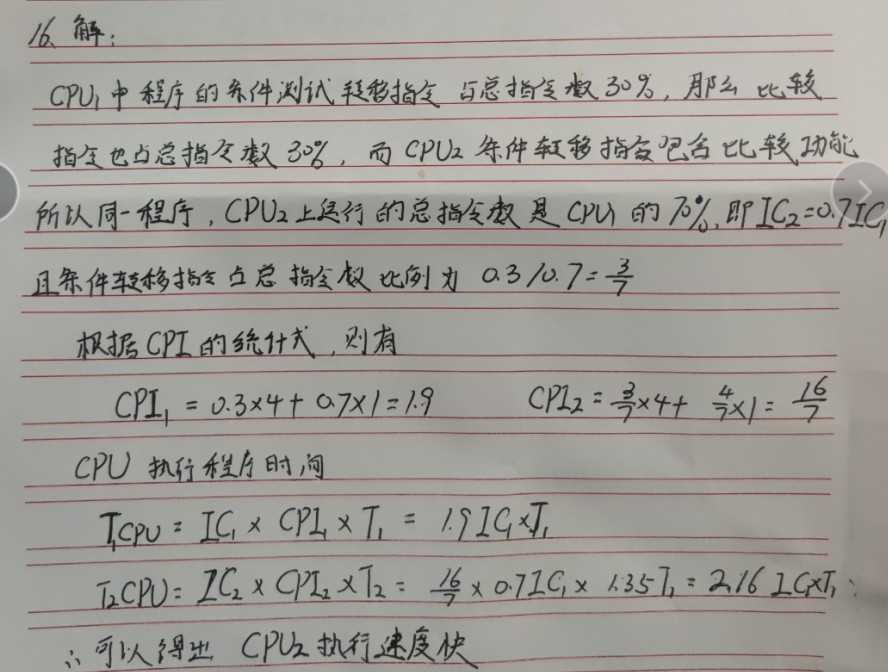 16、解：
CPU₁中程序的条件测试转移指令占总指令数30%，那么比较
指令也占总指令数30%，而CPU₂条件转移指令包含比较功能
所以同一程序，CPU₂上运行的总指令数是CPU₁的70%，即IC₂=0.7IC₁
且条件转移指令占总指令数比例为 0.3/0.7=3/7
根据CPI的统计式，则有
CPI₁ = 0.3×4+0.7×1=1.9 CPI₂ = 3/7×4+4/7×1=16/7
CPU执行程序时间
T₁CPU = IC₁×CPI₁×T₁ = 1.9IC₁×T₁
T₂CPU = IC₂×CPI₂×T₂ = 16/7×0.7IC₁×1.35T₁ = 2.16 IC₁×T₁
∴可以得出 CPU₂执行速度快